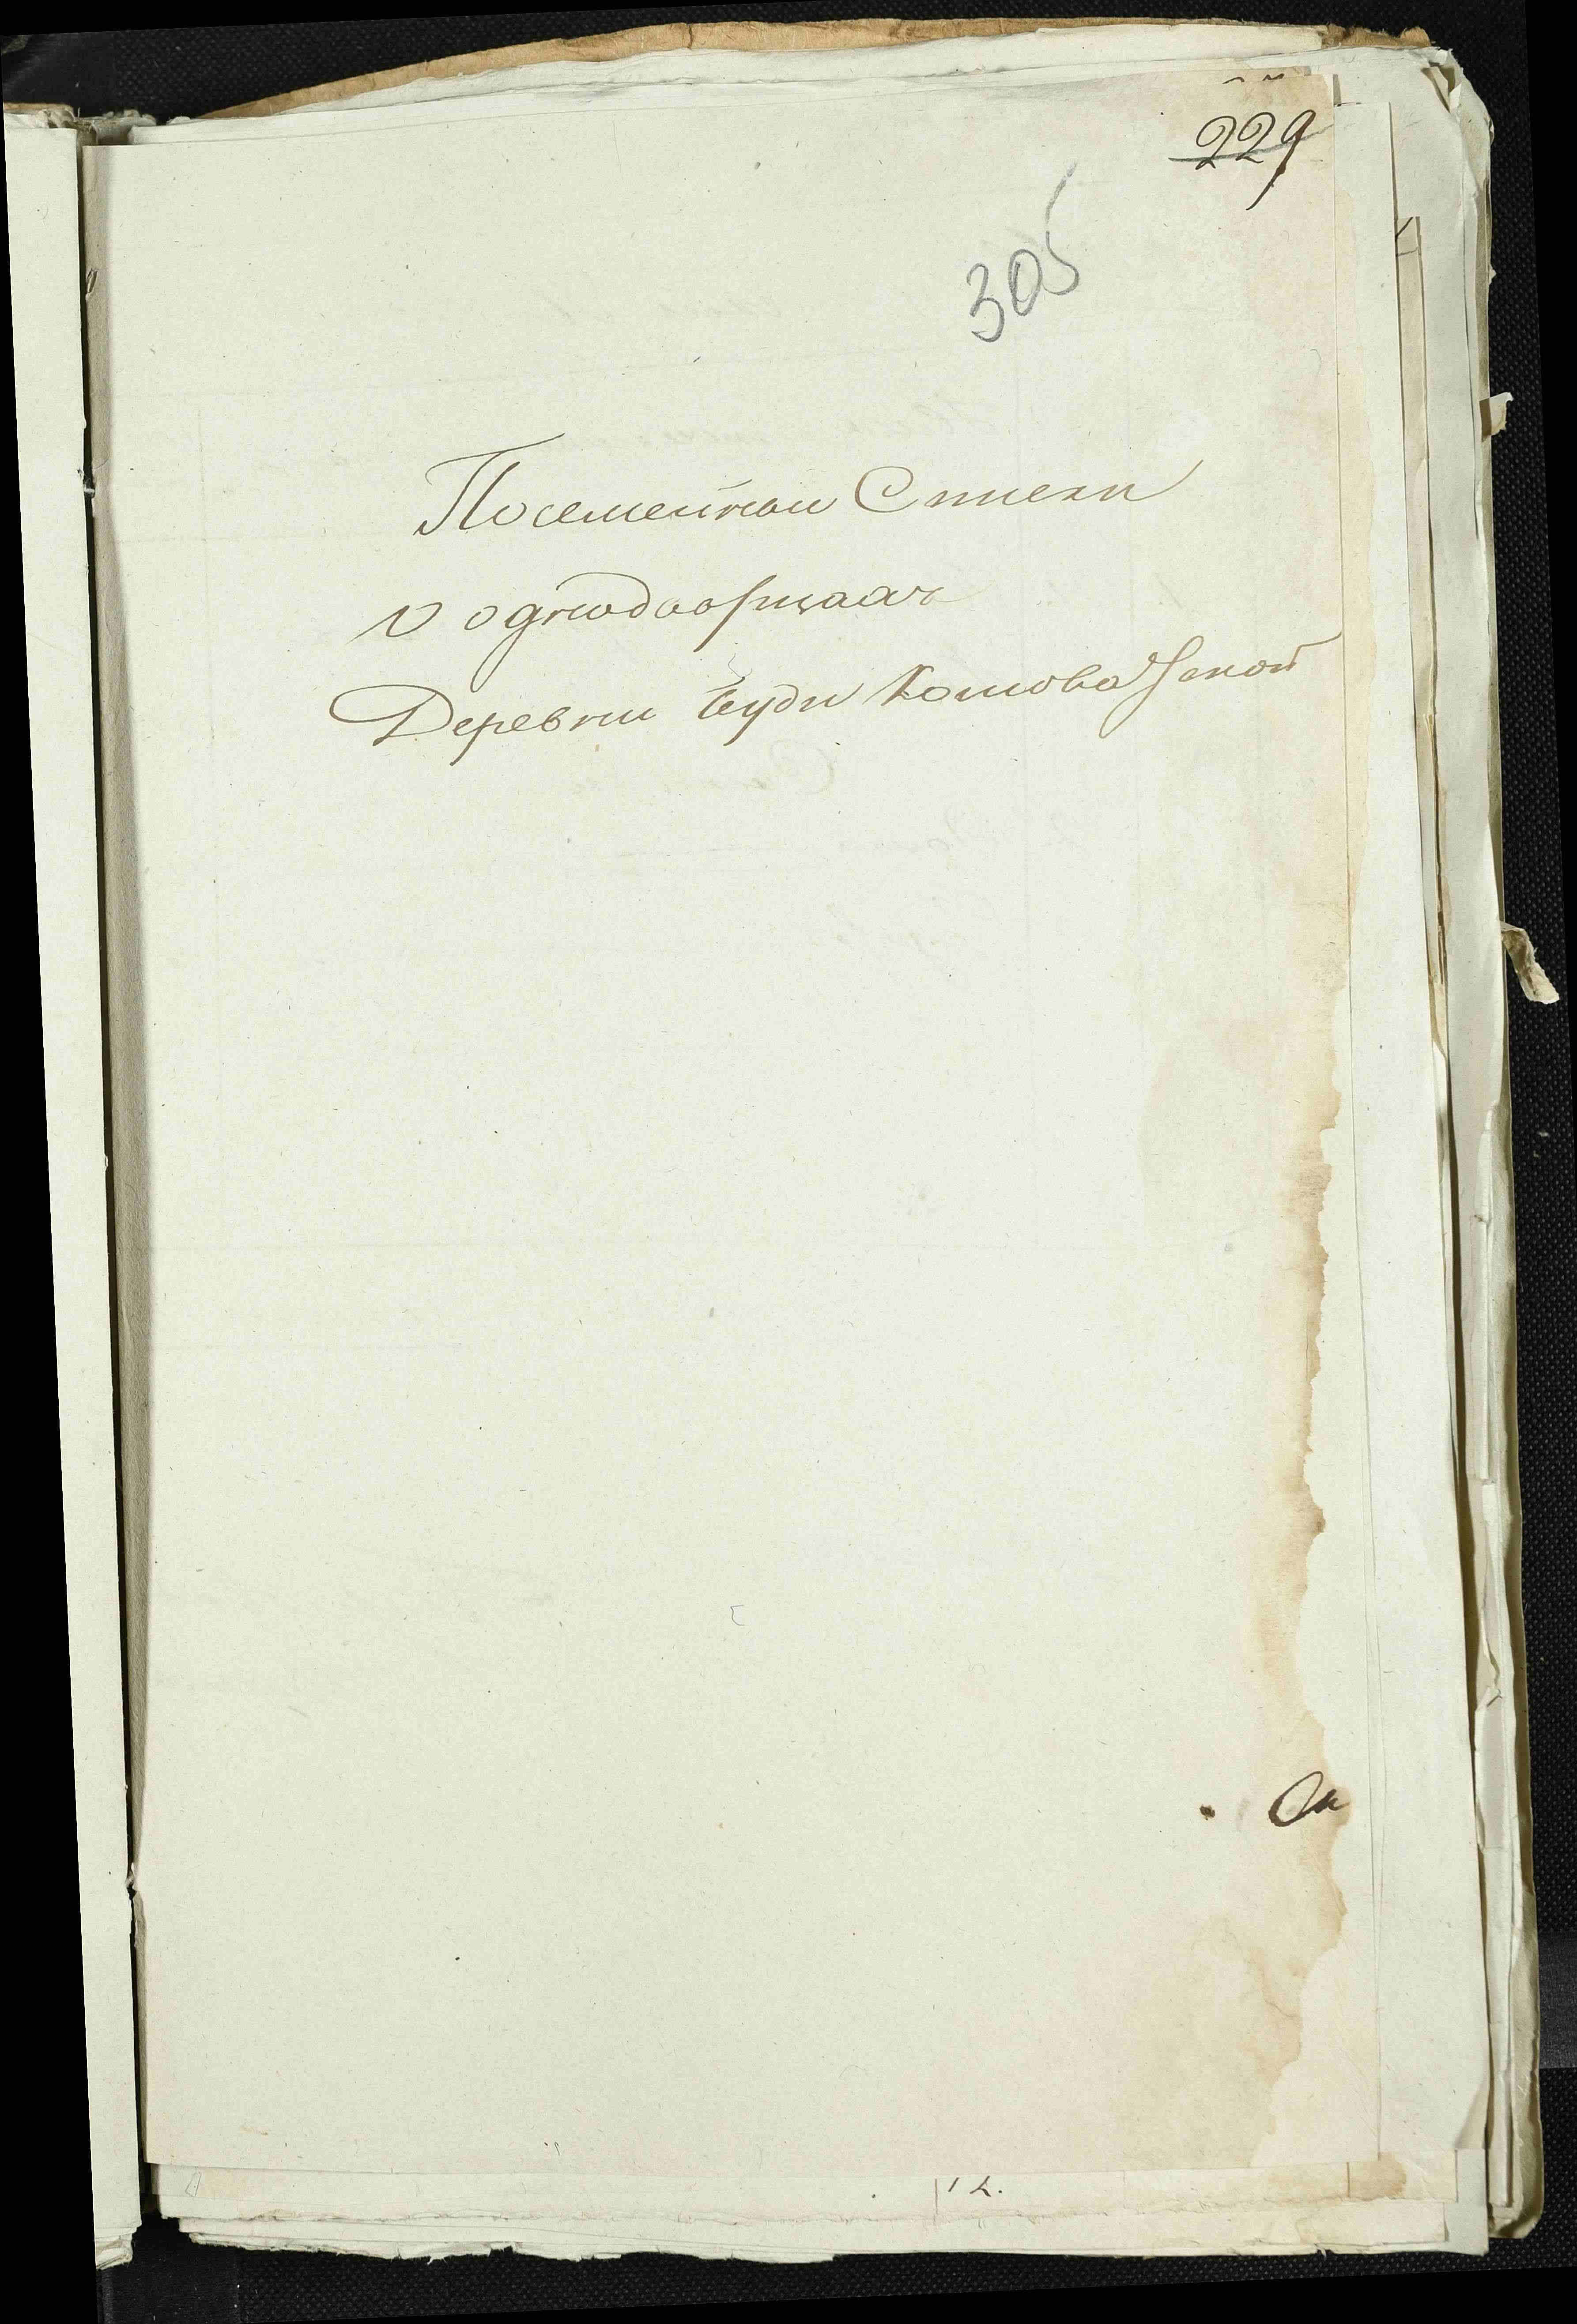 229
305
Посемейнои Списки
о однодворцахъ
Деревни Буди Комова